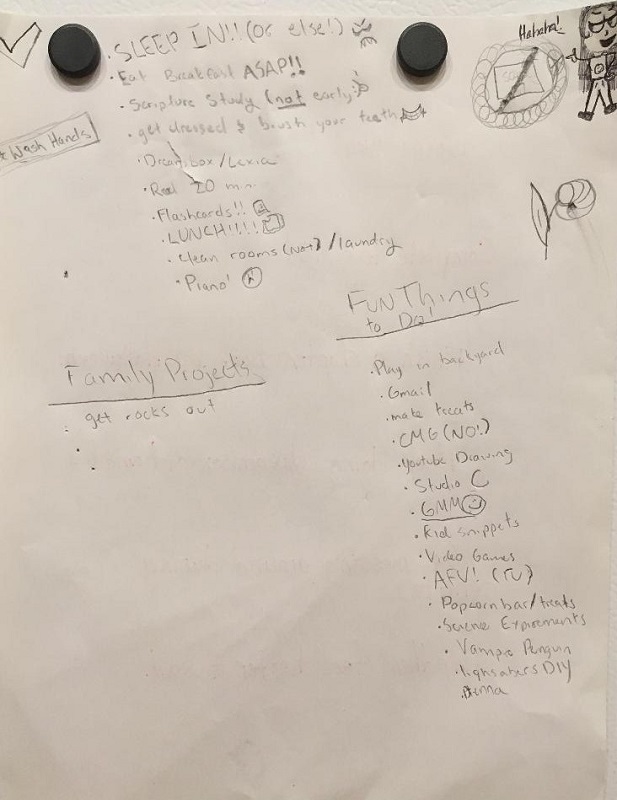 · SLEEP IN!! (or else!)
· Eat Breakfast ASAP!!
· Scripture Study (not early)
· get dressed & brush your teeth
* Wash Hands
Hahaha!
· Dreambox/Lexia
· Read 20 min
· Flashcards!!
· LUNCH!!!!
· clean rooms (Not)/laundry
· Piano!
Fun Things
to Do!
Family Projects
· get rocks out
·
·
· Play in backyard
· Gmail
· make treats
· CMG (NO!)
· Youtube Drawing
· Studio C
· GMM
· Kid snippets
· Video Games
· AFV! (TV)
· Popcorn bar/treats
· Science Expirements
· Vampire Penguin
· lightsabers DIY